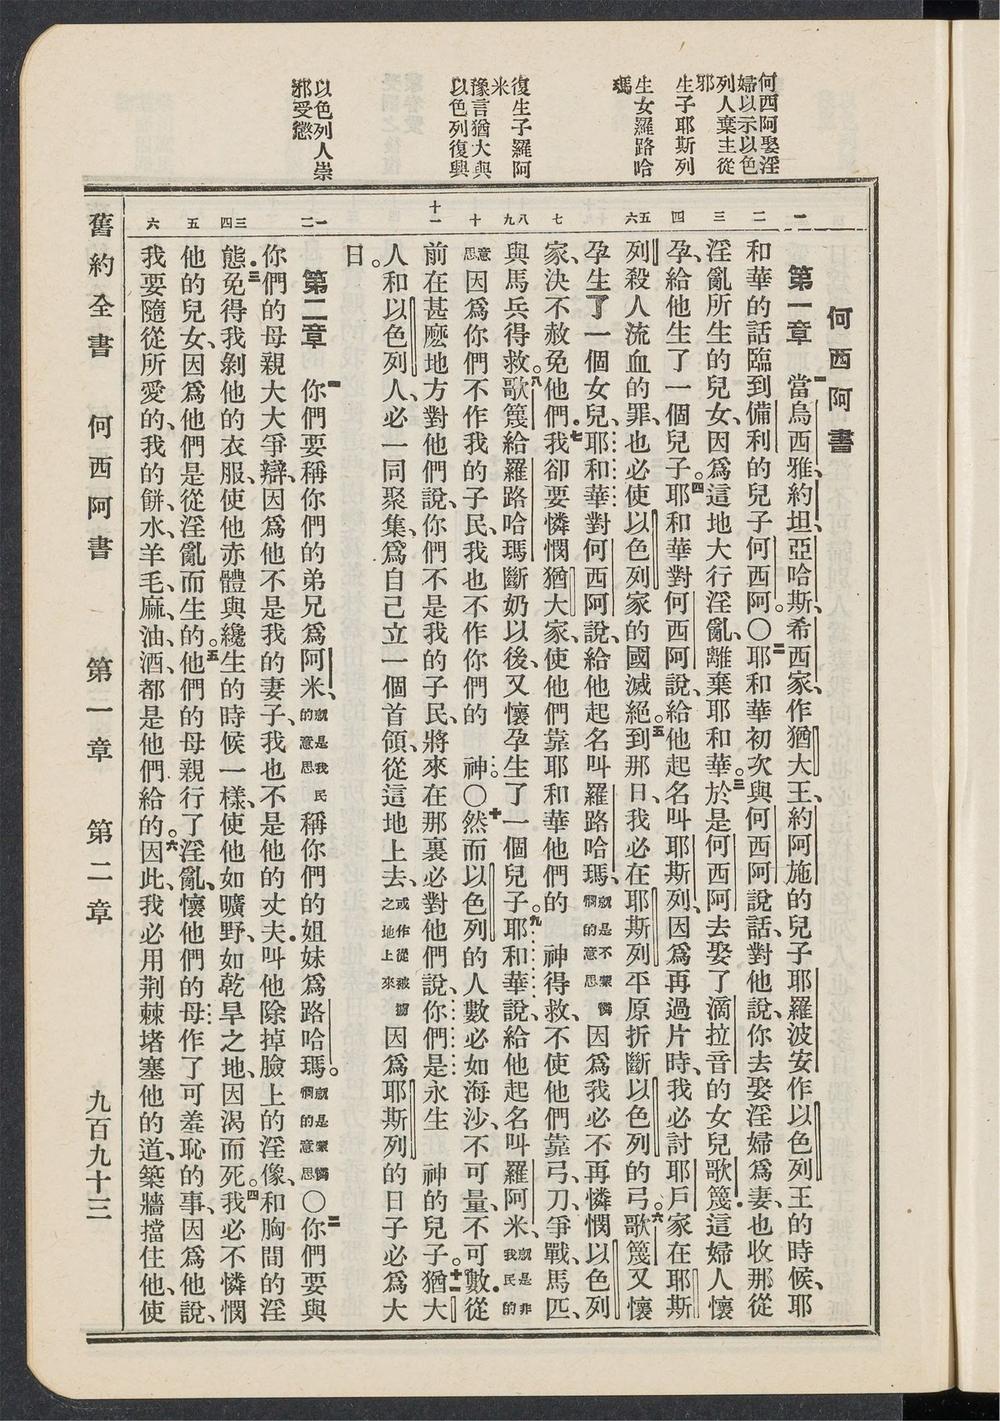 何西阿娶淫
婦以示以色
列人棄主從
邪
生子耶斯列
生女羅路哈
瑪
復生子羅阿
米
豫言猶大與
以色列復興
以色列人崇
邪受懲
一
二
三
四
五六
七
八九
十
十一
一二
三四
五
六
何西阿書
第一章 一當烏西雅、約坦、亞哈斯、希西家、作猶大王、約阿施的兒子耶羅波安作以色列王的時候、耶
和華的話臨到備利的兒子何西阿。〇二耶和華初次與何西阿說話、對他說、你去娶淫婦爲妻、也收那從
淫亂所生的兒女、因爲這地大行淫亂、離棄耶和華。三於是何西阿去娶了滴拉音的女兒歌篾、這婦人懷
孕、給他生了一個兒子。四耶和華對何西阿說、給他起名叫耶斯列、因爲再過片時、我必討耶戶家在耶斯
列殺人流血的罪、也必使以色列家的國滅絕。五到那日、我必在耶斯列平原折斷以色列的弓。六歌篾又懷
孕生了一個女兒、耶和華對何西阿說、給他起名叫羅路哈瑪、就是不蒙憐憫的意思因爲我必不再憐憫以色列
家、決不赦免他們。七我卻要憐憫猶大家、使他們靠耶和華他們的 神得救、不使他們靠弓、刀、爭戰、馬匹、
與馬兵得救。八歌篾給羅路哈瑪斷奶以後、又懷孕生了一個兒子。九耶和華說、給他起名叫羅阿米、就是非我民的
意思因爲你們不作我的子民、我也不作你們的 神。〇十然而以色列的人數必如海沙、不可量、不可數、從
前在甚麽地方對他們說、你們不是我的子民、將來在那裏必對他們說、你們是永生 神的兒子。十一猶大
人和以色列人、必一同聚集、爲自己立一個首領、從這地上去、或作從被擄之地上來因爲耶斯列的日子必爲大
日。
第二章 一你們要稱你們的弟兄爲阿米、就是我民的意思稱你們的姐妹爲路哈瑪。就是蒙憐憫的意思〇二你們要與
你們的母親大大爭辯、因爲他不是我的妻子、我也不是他的丈夫、叫他除掉臉上的淫像、和胸間的淫
態。三免得我剝他的衣服、使他赤體與纔生的時候一樣、使他如曠野、如乾旱之地、因渴而死。四我必不憐憫
他的兒女、因爲他們是從淫亂而生的。五他們的母親行了淫亂、懷他們的母作了可羞恥的事、因爲他說、
我要隨從所愛的、我的餅、水、羊毛、麻、油、酒、都是他們給的。六因此、我必用荆棘堵塞他的道、築牆擋住他、使
舊約全書 何西阿書 第一章 第二章 九百九十三